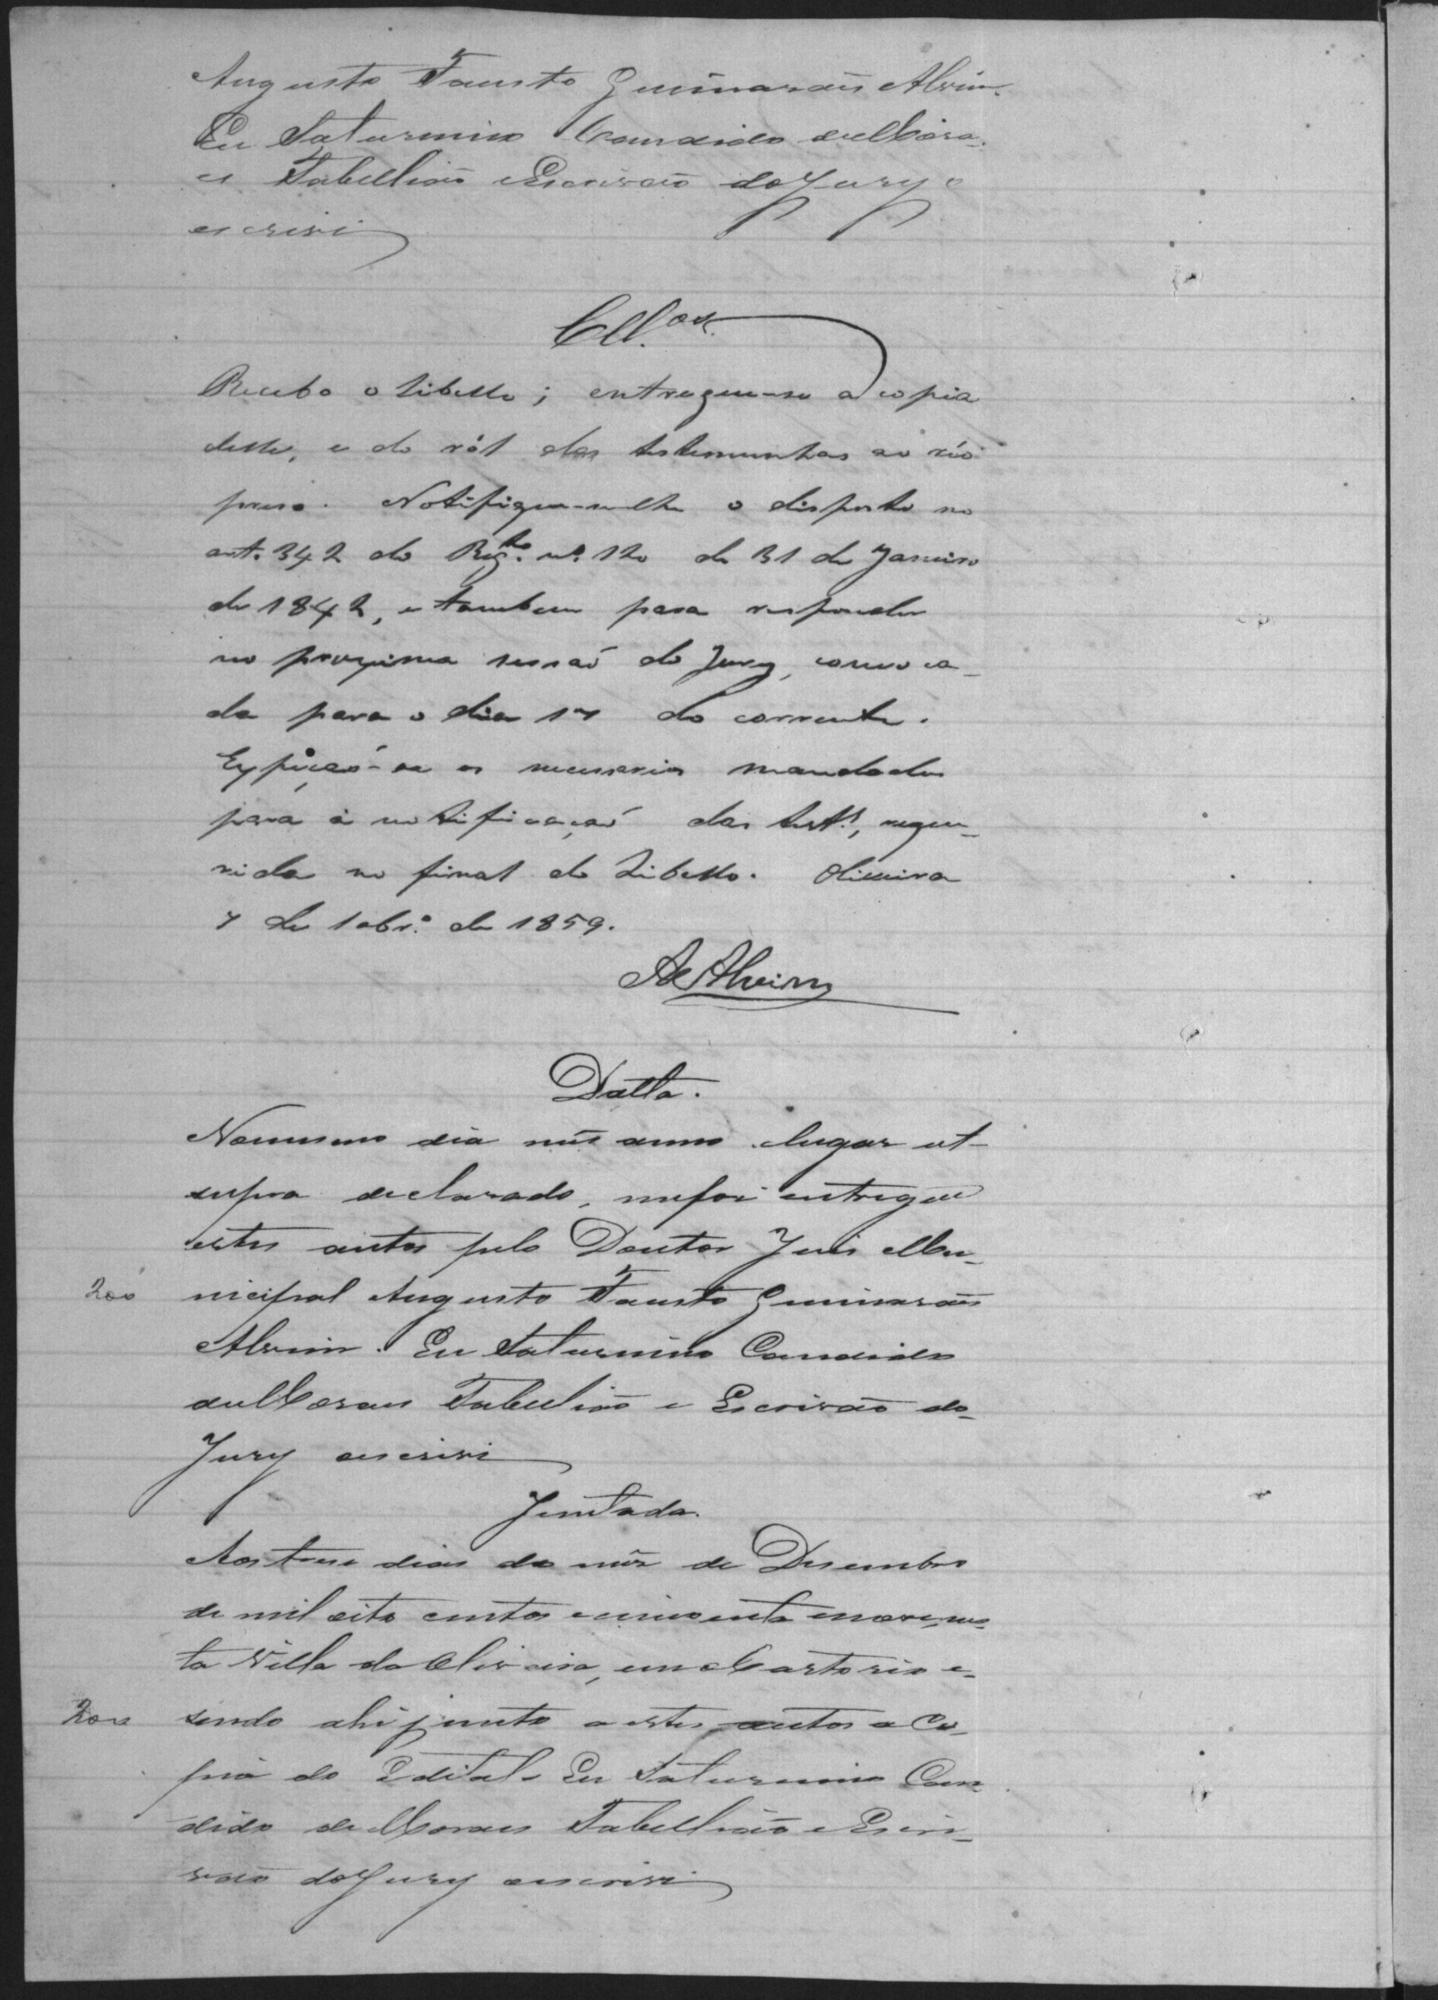 Augusto Fausto Guimarães Alvim.
Eu Saturnino Candido de Mora-
es Tabellião e Escrivão do Jury o
escrivi
Cll.os
Recebo o libello; entregue-se a copia
deste, e do ról das testemunhas ao réo
preso. Notifique-se-lhe o disposto no
art. 342 do Reg.to nº. 120 de 31 de Janeiro
de 1842, e tambem para responder
na proxima sessaõ do Jury, convoca-
da para o dia 17 do corrente.
Expiçaõ-se os necessarios mandados
para a notificaçaõ das test.s, reque-
rida no final do Libello. Oliveira
7 de 10br.o de 1859.
A Alvim
Datta.
No mesmo dia mes anno e lugar ut-
supra declarado, me foi entregue
estes autos pelo Doutor Juis Mu-
200 nicipal Augusto Fausto Guimarães
Alvim. Eu Saturnino Candido
de Moraes Tabellião e Escrivão do-
Jury escrivi
Juntada.
Aos trese dias do mês de Desembro
de mil oito centos e cincoenta e nove, nes-
ta Villa da Oliveira, em o Cartorio e-
200 sendo ahi junto a estes autos a Co-
pia do Edital. Eu Saturnino Can-
dido de Moraes Tabellião e Escri-
vão do Jury escrivi